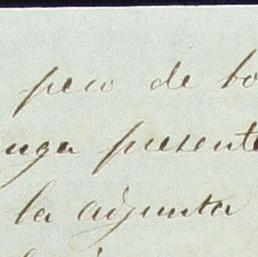 peco de bo
uga presente
la adjunta